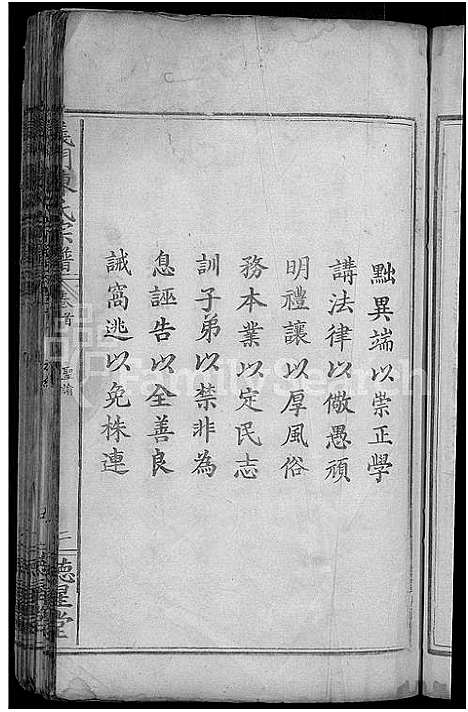 黜異端以崇正學
講法律以儆愚頑
明禮讓以厚風俗
務本業以定民志
訓子弟以禁非為
息誣告以全善良
誡窩逃以免株連
義門陳氏宗譜
卷首
聖諭
德星堂
FamilySearch